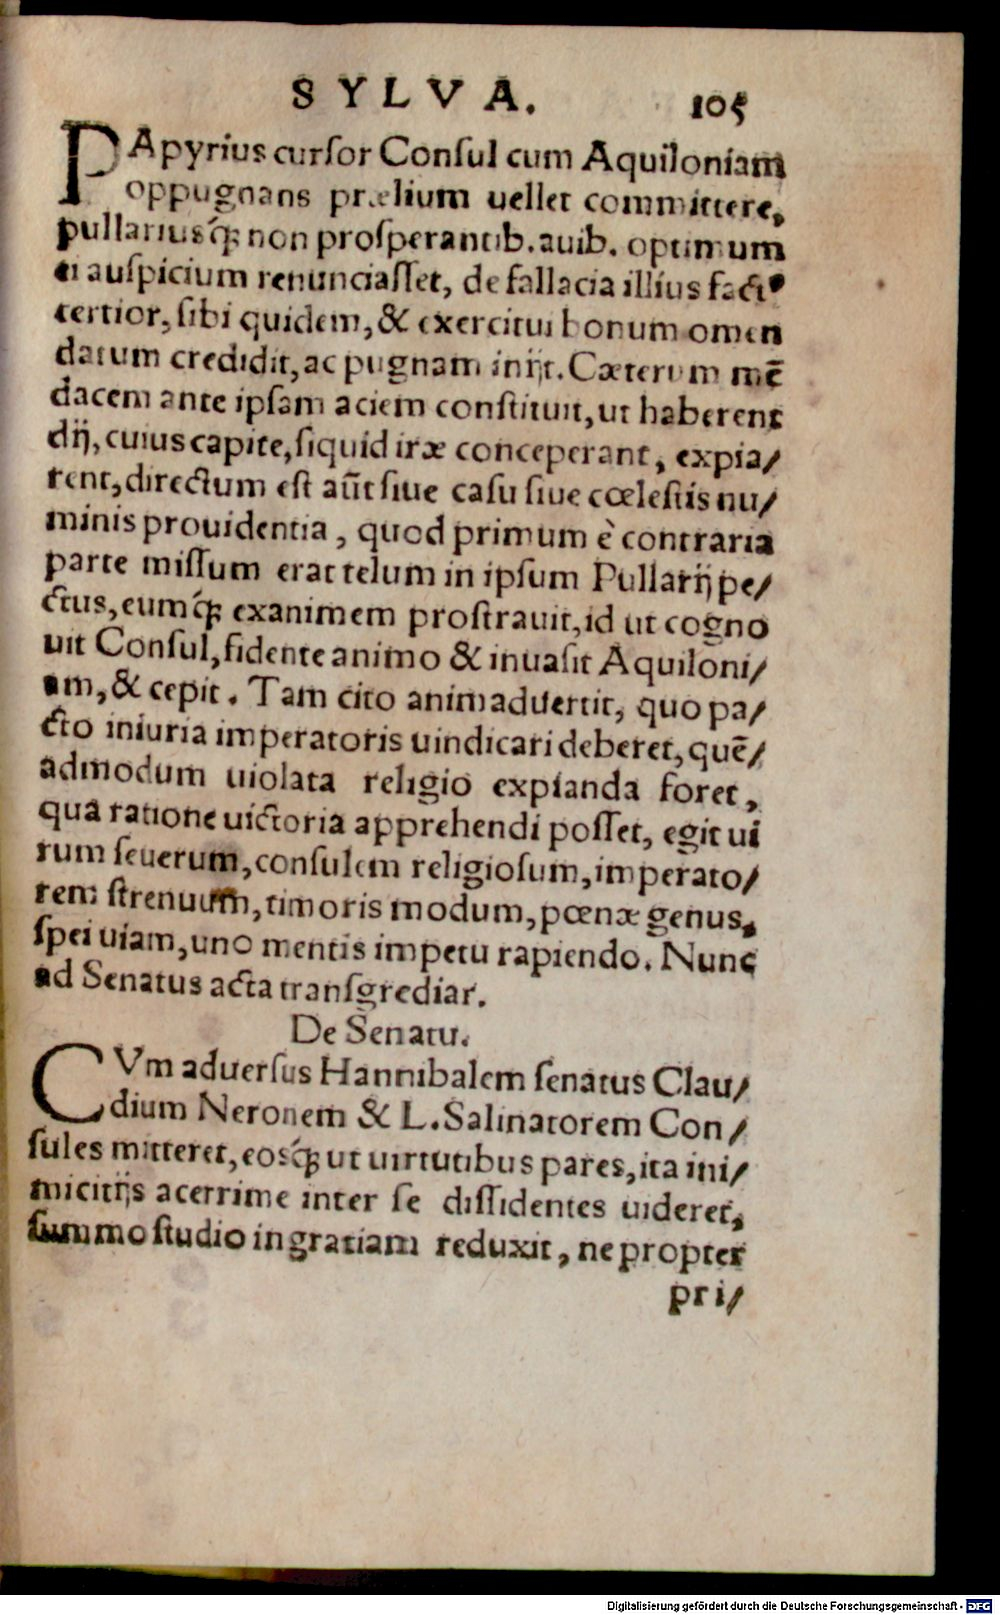 SYLVA. 105
PApyrius curſor Conſul cum Aquiloniam
oppugnans prælium uellet committere,
pullariusq́; non proſperantib. auib. optimum
ei auſpicium renunciaſſet, de fallacia illius factꝰ
certior, ſibi quidem, & exercitui bonum omen
datum credidit, ac pugnam inijt. Cæterum mē
dacem ante ipſam aciem conſtituit, ut haberent
dij, cuius capite, ſiquid iræ conceperant, expia/
rent, directum eſt aūt ſiue caſu ſiue cœleſtis nu/
minis prouidentia, quod primum è contraria
parte miſſum erat telum in ipſum Pullarij pe/
ctus, eumq́; exanimem proſtrauit, id ut cogno
uit Conſul, fidente animo & inuaſit Aquiloni/
am, & cepit. Tam cito animaduertit, quo pa/
cto iniuria imperatoris uindicari deberet, quē/
admodum uiolata religio expianda foret,
qua ratione uictoria apprehendi poſſet, egit ui
rum ſeuerum, conſulem religioſum, imperato/
rem ſtrenuum, timoris modum, pœnæ genus,
ſpei uiam, uno mentis impetu rapiendo. Nunc
ad Senatus acta tranſgrediar.
De Senatu.
CVm aduerſus Hannibalem ſenatus Clau/
dium Neronem & L. Salinatorem Con/
ſules mitteret, eosq́; ut uirtutibus pares, ita ini/
micitijs acerrime inter ſe diſſidentes uideret,
ſummo ſtudio in gratiam reduxit, ne propter
pri/
Digitalisierung gefördert durch die Deutsche Forschungsgemeinschaft - DFG